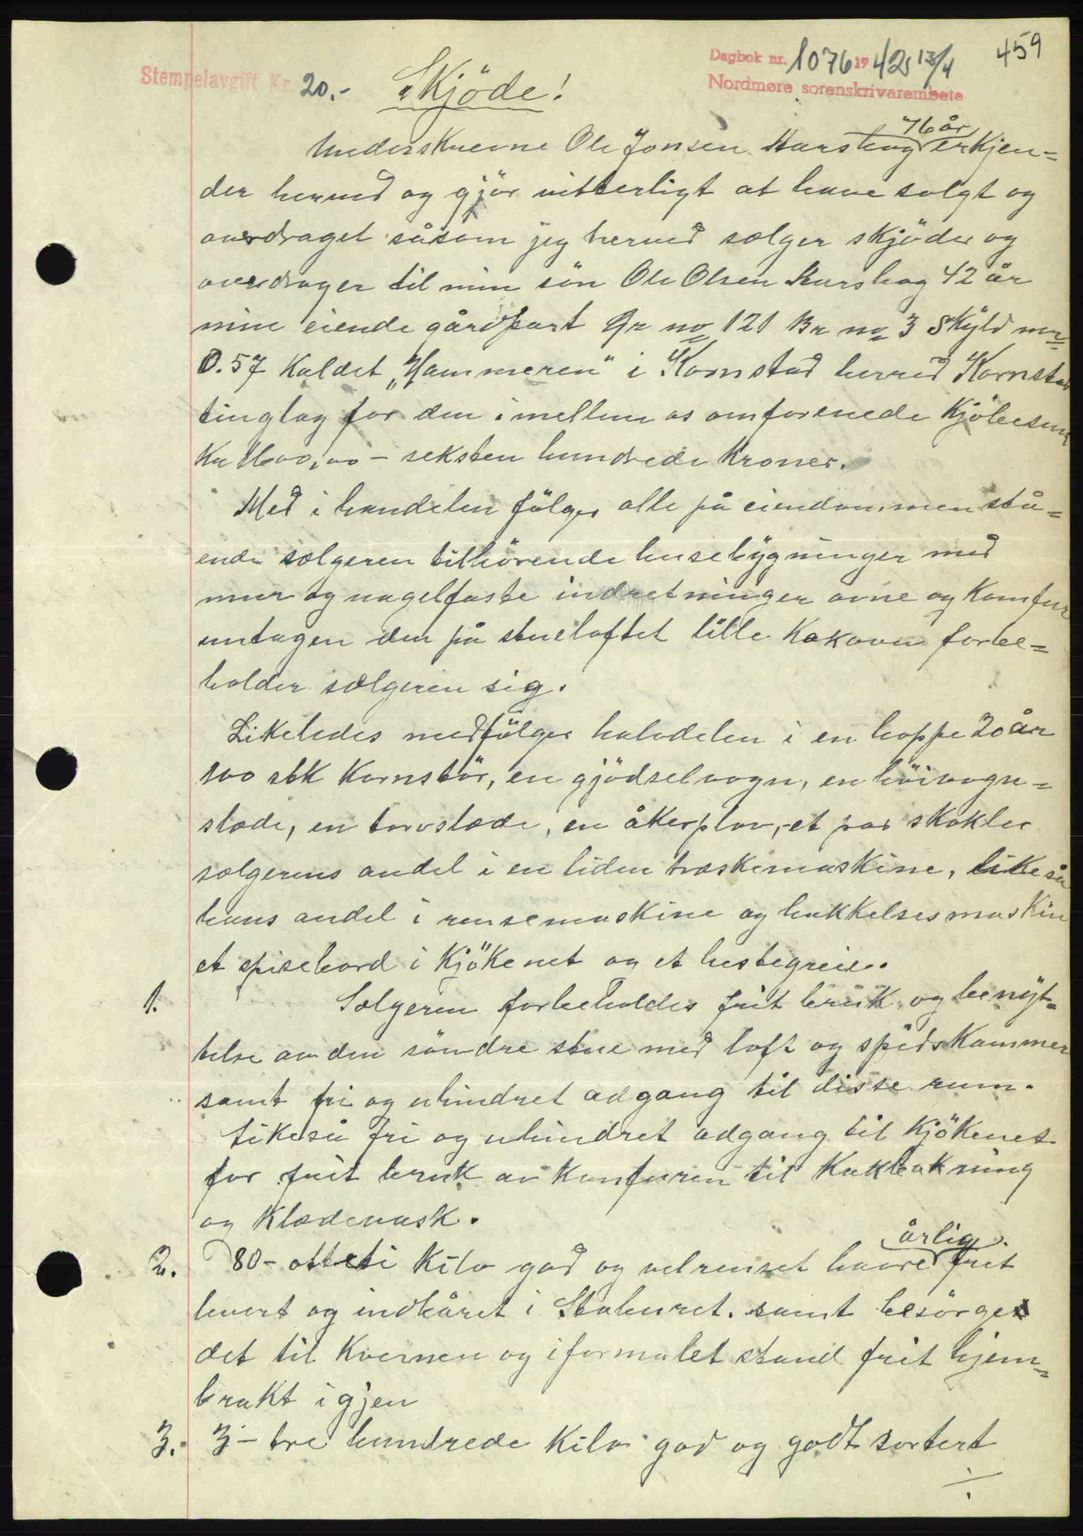 459
Dagbok nr. 1076 1942 13/4
Nordmøre sorenskrivarembete
Stempelavgift Kr. 20.-
Skjöde!
76 år
Underskrevne Ole Jonsen Harshaug erkjen=
der herved og gjör vitterligt at have solgt og
overdraget såsom jeg herved sælger skjöder og
overdrager til min sön Ole Olsen Harshaug 42 år
min eiende gårdpart Gr no 121 Br no 3 Skyld mrk
0.57 kaldet "Hammeren" i Kornstad herred Kornstad
tinglag for den imellem os omforenede Kjöbesum
Kr 1600,00 - seksten hundrede Kroner.
Med i handelen fölger alle på eiendommen stå=
ende sælgeren tilhörende husebygninger med
mur og nagelfaste indretninger ovne og Komfur
untagen den på stueloftet lille Kakovn forbe=
holder sælgeren sig.
Likeledes medfölger halvdelen i en hoppe 20 år
100 stk Kornstör, en gjödselvogn, en höivogn=
slæde, en torvslæde, en åkerplov, et par skokler
sælgerens andel i en liden træskemaskine, likeså
hans andel i rensemaskine og hakkelsesmaskin
et spisebord i Kjökenet og et hestegreie.
1. Sælgeren forbeholdes frit bruk og benyt=
telse av den söndre stue med loft og spidskammer
samt fri og uhindret adgang til disse rum.
Likeså fri og uhindret adgang til Kjökenet
for frit bruk av Komfuren til Kakbakning
og Klædevask.
årlig
2. 80 - otteti Kilo god og velrenset havre frit
levert og indbåret i Stabüret. samt besörges
det til Kvernen og i formalet stand frit hjem=
brakt igjen
3. 3 - tre hundrede Kilo god og godt sortert